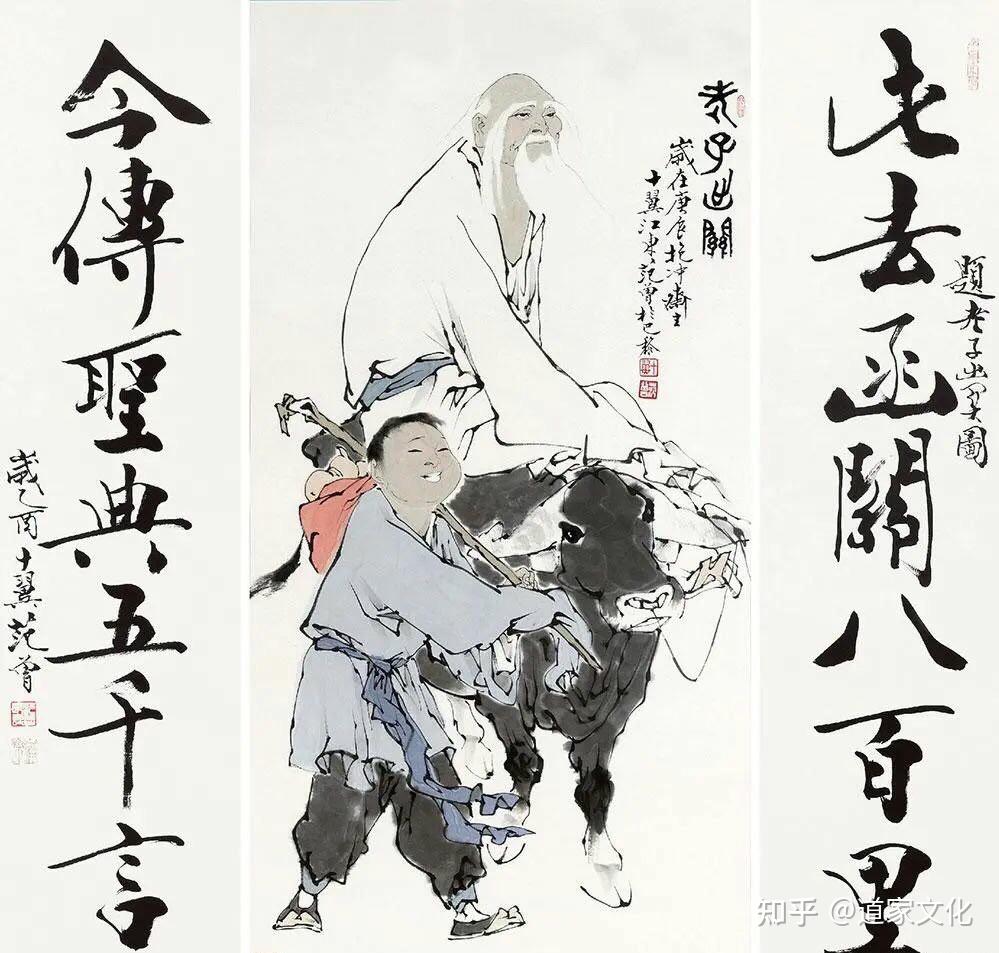 此去函關八百里
題老子出關圖
老子出關
歲在庚辰抱冲齋主
十翼江東范曾於巴黎
今傳聖典五千言
歲乙酉十翼范曾
知乎 @道家文化